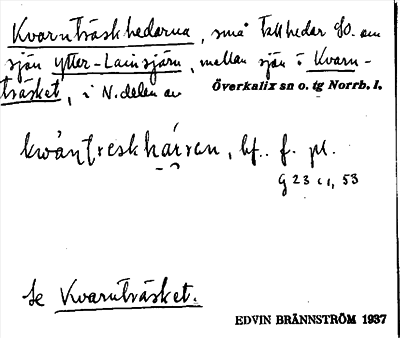 Kvarnträskhedarna, små tallhedar SO. om
sjön Ytter-Lainsjärv, mellan sjön o. Kvarn-
träsket, i N. delen av Överkalix sn o. tg Norrb. l.
bf. f. pl.
G 23 c 1, 53
Se Kvarnträsket.
EDVIN BRÄNNSTRÖM 1937